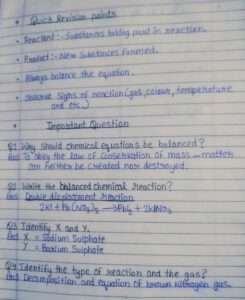 Quick Revision points
Reactant :- Substances taking part in reaction.
Product :- New Substances formed.
Always balance the equation.
Observe signs of reaction (gas, colour, temperature
and etc.)
Important Question
Q1 Why should chemical equations be balanced?
Ans To obey the law of Conservation of mass - matter
can neither be created nor destroyed.
Q2 Write the balanced chemical reaction?
Ans Double displacement reaction
2KI + Pb(NO3)2 → PbI2 + 2KNO3
Q3 Identify X and Y.
Ans X = Sodium Sulphate
Y = Barium Sulphate
Q4 Identify the type of reaction and the gas?
Ans Decomposition and equation of brown nitrogen gas.